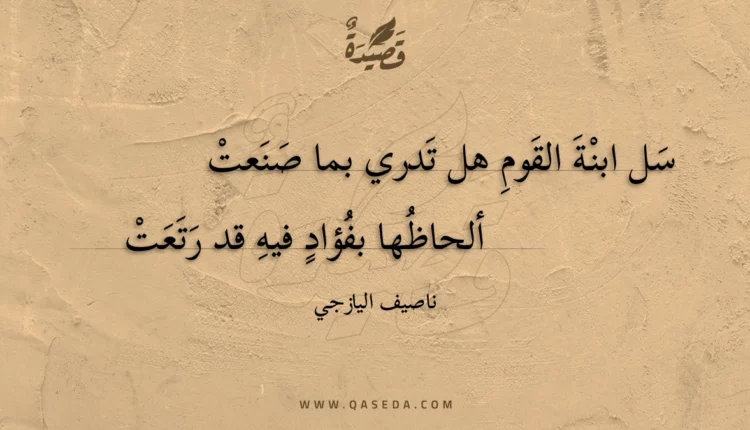 قَصِيْدَةٌ
سَل ابنْةَ القَومِ هل تَدري بما صَنَعتْ
ألحاظُها بفُؤادٍ فيهِ قد رَتَعَتْ
ناصيف اليازجي
WWW.QASEDA.COM